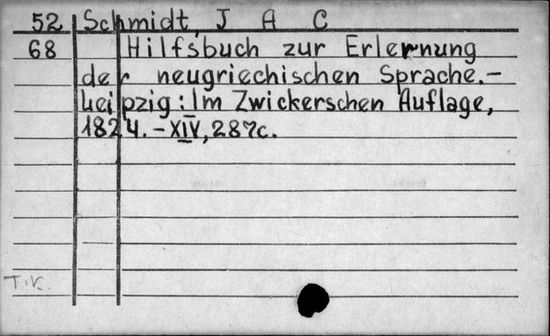 52 Schmidt, J A C
68 Hilfsbuch zur Erlernung
der neugriechischen Sprache.-
Leipzig: Im Zwickerschen Auflage,
1824. - XIV, 287c.
T.K.